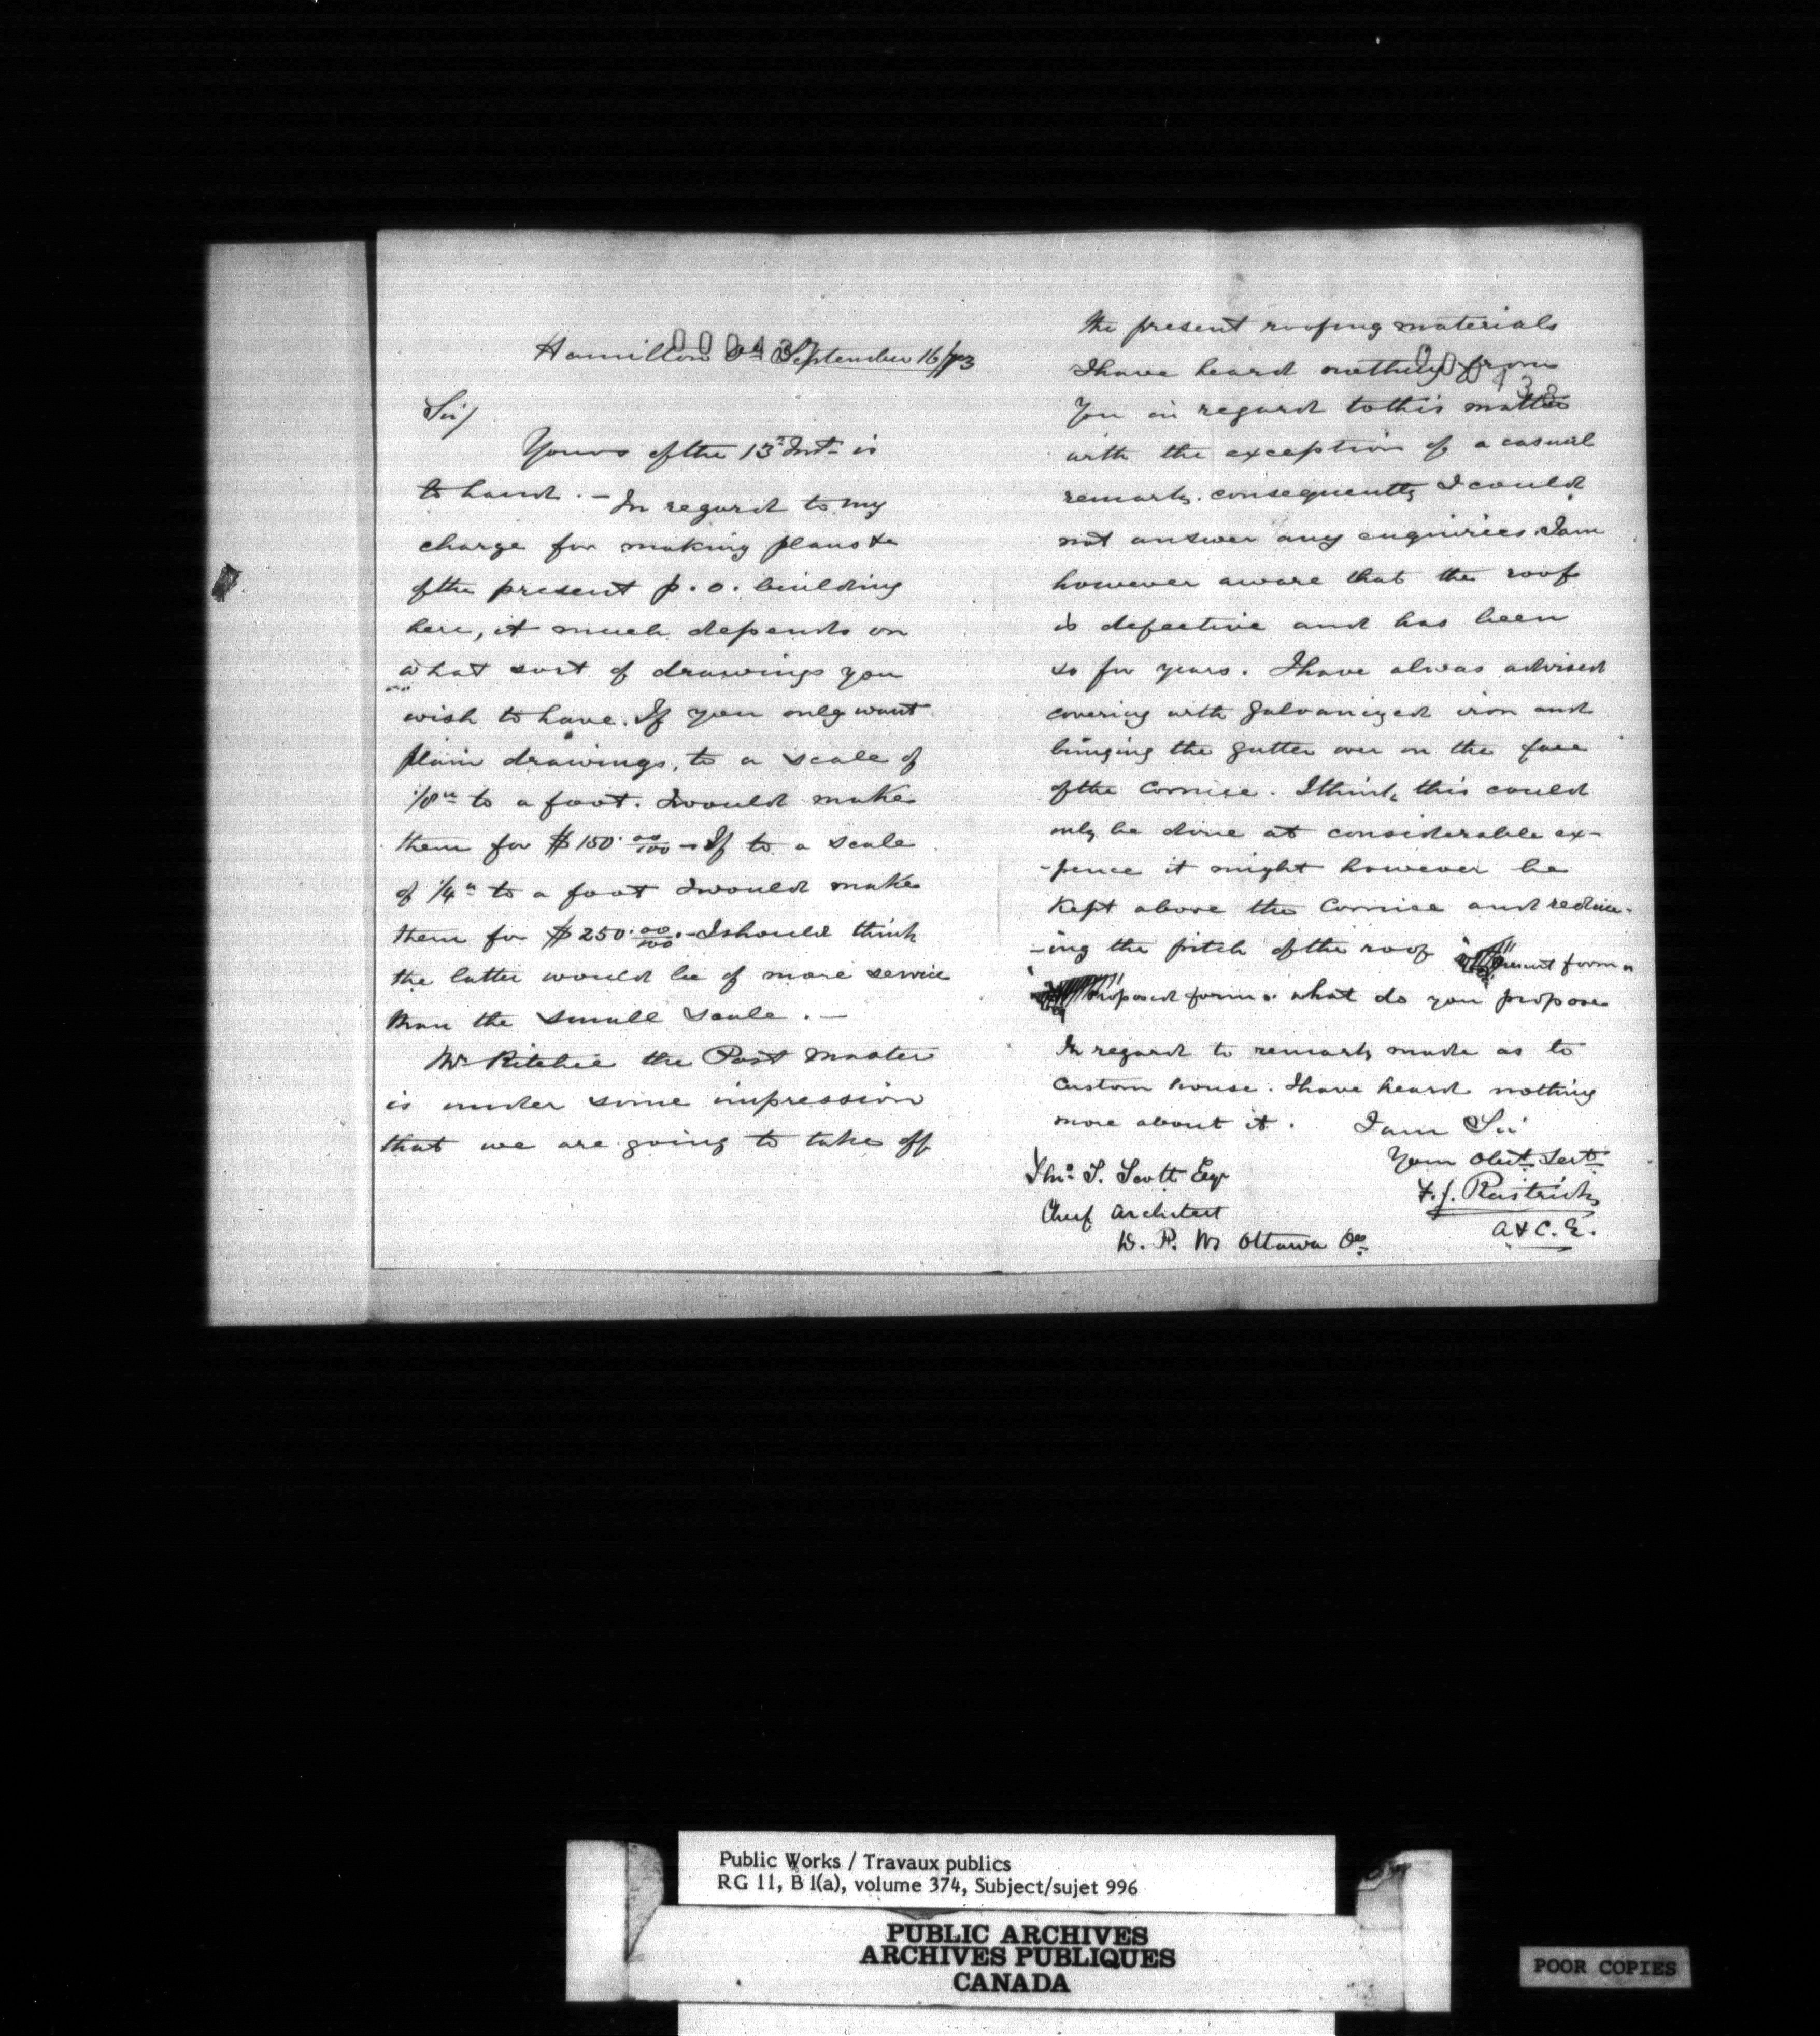 Hamilton On September 16/73
000437
Sir/
Yours of the 13th Inst is
to hand. - In regard to my
charge for making plans &c
of the present p. o. building
here, it much depends on
what sort of drawings you
wish to have. If you only want
plain drawings, to a scale of
1/8" to a foot. I would make
them for $150.00/100 - If to a scale
of 1/4" to a foot I would make
them for $250.00/100. - I should think
the latter would be of more service
than the small scale. -
Mr Ritchie the Post Master
is under some impression
that we are going to take off
the present roofing materials
000438
I have heard nothing from
You in regard to this matter
with the exception of a casual
remark. consequently I could
not answer any enquiries. I am
however aware that the roof
is defective and has been
so for years. I have alwas advised
covering with galvanized iron and
bringing the gutter over on the face
of the Cornice. I think this could
only be done at considerable ex-
-pence it might however be
Kept above the Cornice and reduc-
-ing the pitch of the roof present form
proposed form. what do you propose
In regard to remark made as to
Custom house. I have heard nothing
more about it. I am Sir
Your Obedt. Servt.
Thos. S. Scott Esqr
F. J. Rastrick
Chief Architect
A & C. E.
D. P. W Ottawa On.
Public Works / Travaux publics
RG 11, B 1(a), volume 374, Subject/sujet 996
PUBLIC ARCHIVES
ARCHIVES PUBLIQUES
CANADA
POOR COPIES